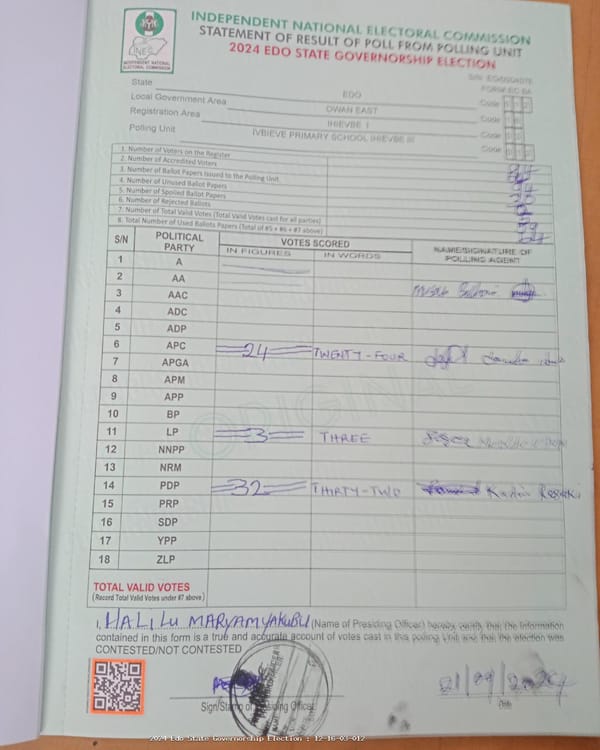 INDEPENDENT NATIONAL ELECTORAL COMMISSION
STATEMENT OF RESULT OF POLL FROM POLLING UNIT
2024 EDO STATE GOVERNORSHIP ELECTION
INEC
INDEPENDENT NATIONAL ELECTORAL COMMISSION
FORM EC 8A
State EDO Code
Local Government Area OWAN EAST Code
Registration Area IHIEVBE I Code
Polling Unit IVBIEVE PRIMARY SCHOOL IHIEVBE III Code
1. Number of Voters on the Register
2. Number of Accredited Voters
3. Number of Ballot Papers Issued to the Polling Unit
4. Number of Unused Ballot Papers
5. Number of Spoiled Ballot Papers
6. Number of Rejected Ballots
7. Number of Total Valid Votes (Total Valid Votes cast for all parties)
8. Total Number of Used Ballots Papers (Total of #5 + #6 + #7 above)
S/N POLITICAL PARTY VOTES SCORED NAME/SIGNATURE OF POLLING AGENT
IN FIGURES IN WORDS
1 A
2 AA
3 AAC
4 ADC
5 ADP
6 APC 24 TWENTY-FOUR
7 APGA
8 APM
9 APP
10 BP
11 LP 3 THREE
12 NNPP
13 NRM
14 PDP 32 THIRTY-TWO
15 PRP
16 SDP
17 YPP
18 ZLP
ORIGINAL
TOTAL VALID VOTES
(Record Total Valid Votes under #7 above)
I, HALILU MARYAM YAKUBU (Name of Presiding Officer) hereby certify that the information
contained in this form is a true and accurate account of votes cast in this polling Unit and that the election was
CONTESTED/NOT CONTESTED
Sign/Stamp of Presiding Officer
21/09/2024
Date
2024 Edo State Governorship Election : 12-16-03-012